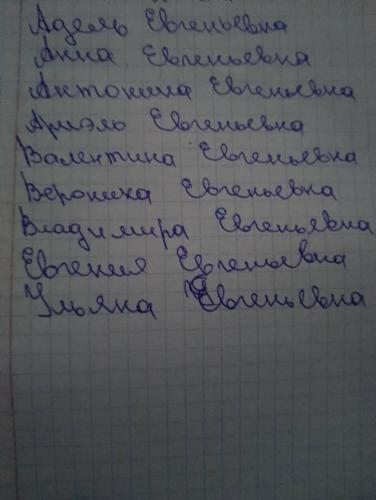 Адель Евгеньевна
Анна Евгеньевна
Антонина Евгеньевна
Ариэль Евгеньевна
Валентина Евгеньевна
Вероника Евгеньевна
Владимира Евгеньевна
Евгения Евгеньевна
Ульяна Евгеньевна